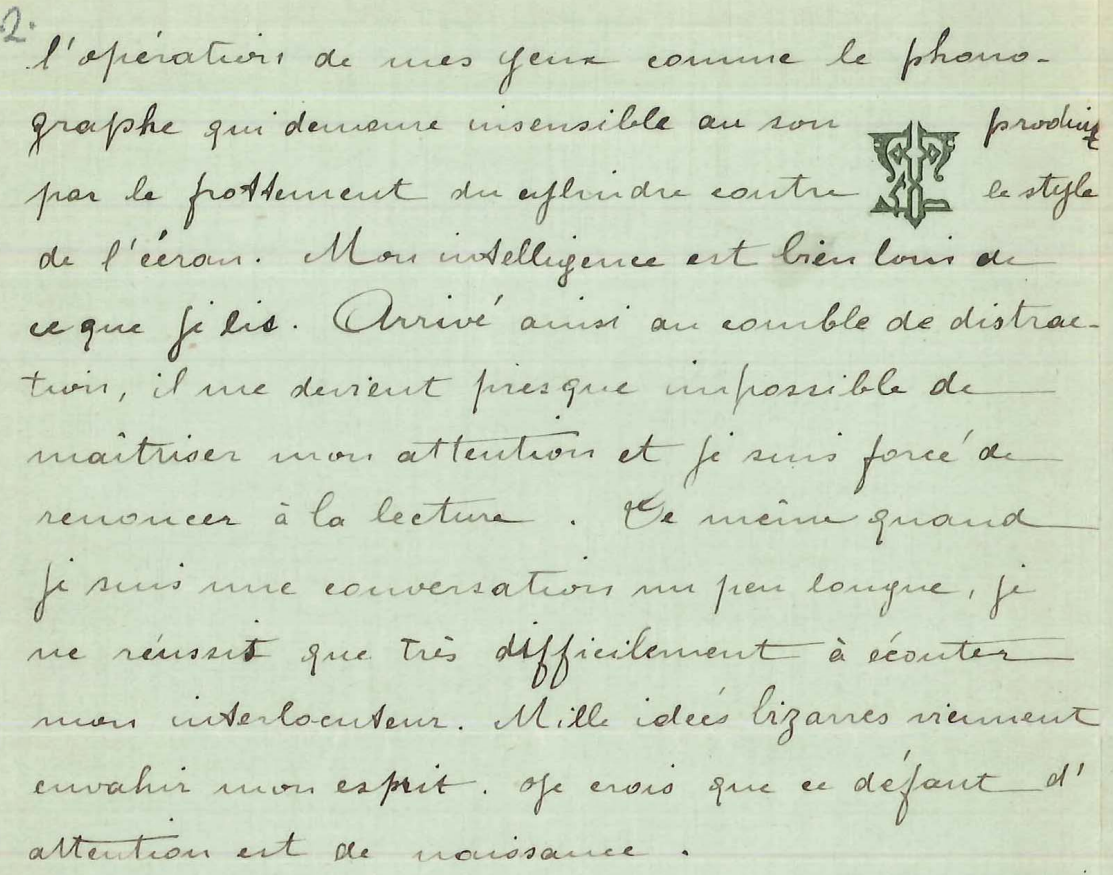 2.
l'opération de mes yeux comme le phono-
graphe qui demeure insensible au son produit
par le frottement du cylindre contre le style
de l'écran. Mon intelligence est bien loin de
ce que je lis. Arrivé ainsi au comble de distrac-
tion, il me devient presque impossible de
maîtriser mon attention et je suis forcé de
renoncer à la lecture. De même quand
je suis une conversation un peu longue, je
ne réussit que très difficilement à écouter
mon interlocuteur. Mille idées bizarres viennent
envahir mon esprit. Je crois que ce défaut d'
attention est de naissance.